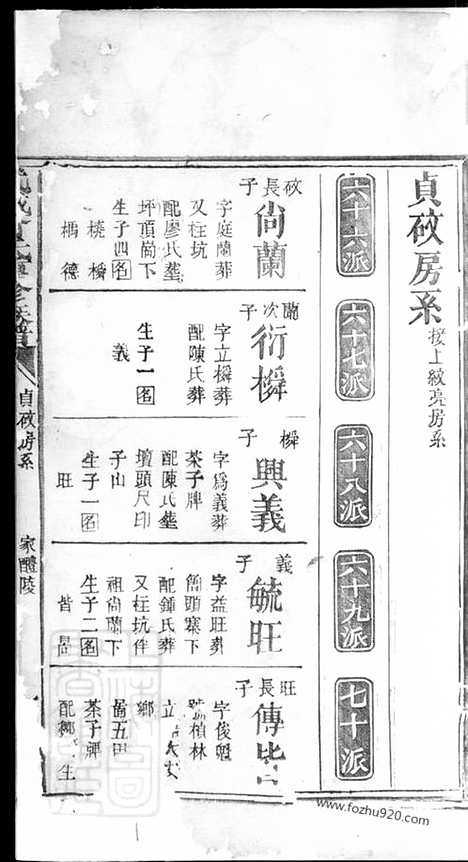 貞砇房系
接上紋亮房系
六十六派
六十七派
六十八派
六十九派
七十派
砇長子
尙蘭
字庭蘭葬
又柱坑
配廖氏塟
坪頂崗下
生子四名
橈 橓
檽 德
蘭次子
衍橓
字立橓葬
配陳氏葬
生子一名
義
橓子
興義
字爲義葬
茶子牌
配陳氏塟
壇頭尺印
子山
生子一名
旺
義子
毓旺
字益旺葬
簡頭寨下
配鍾氏葬
又柱坑伴
祖尙蘭下
生子二名
皆 昌
旺長子
傳皆
字俊魁
號植林
立
鄉
崙五甲
茶子牌
配鄉 生
貞砇房系
家醴陵
www.fozhu920.com